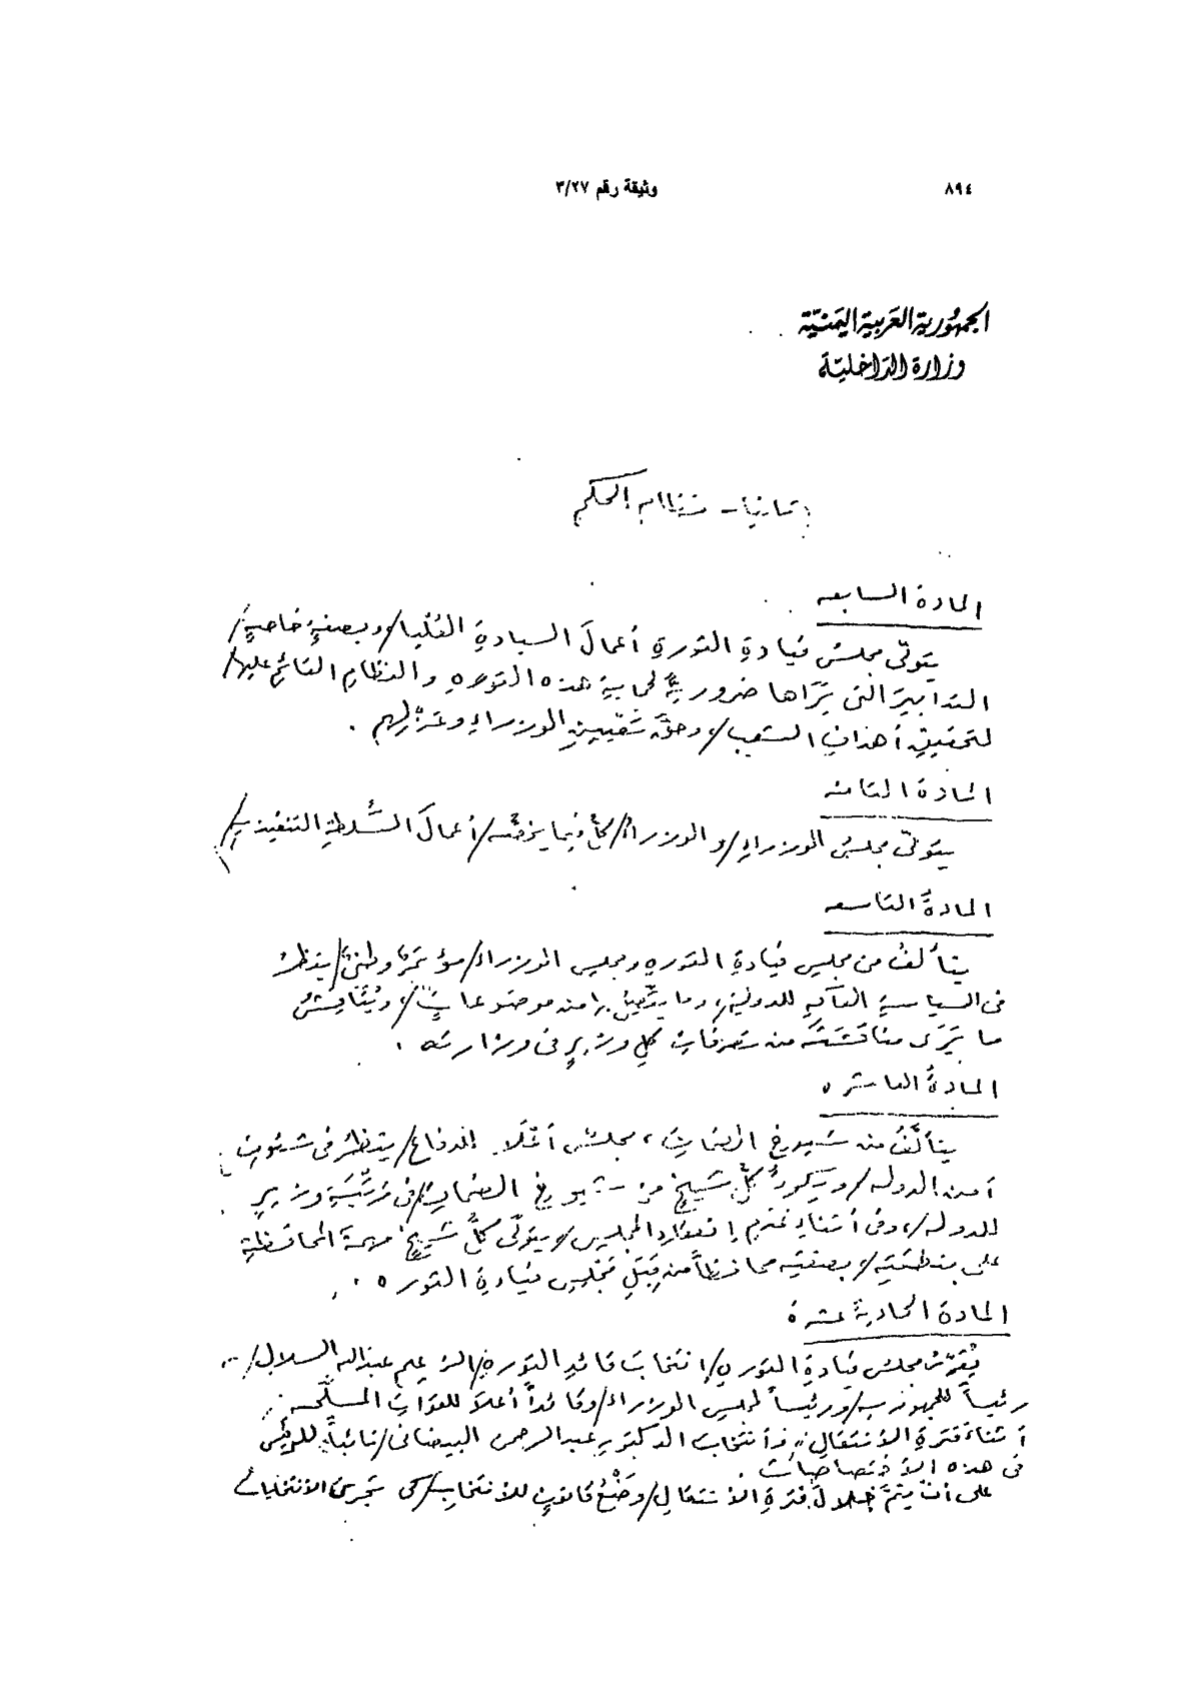 ٨٩٤
وثيقة رقم ٣/٢٧
الجمهورية العربية اليمنية
وزارة الداخلية
ثانيا - نظام الحكم
المادة السابعه
يتولّى مجلسُ قيادةِ الثورةِ أعمالَ السيادةِ العُليا/ وبصفةٍ خاصةٍ/
التدابيرَ التى يَرَاها ضروريةً لحمايةِ هذه الثورهِ والنظامِ القائمِ عليها/
لتحقيقِ أهدافِ الشعب/، وحقَّ تعيينِ الوزراءِ وعزلِهم .
المادة الثامنه
يتولّى مجلسُ الوزراءِ/ والوزراءُ/ كلٌّ فيما يخصُّه/ أعمالَ السُّلطةِ التنفيذيةِ/
المادةُ التاسعه
يتألفُ من مجلسِ قيادةِ الثورهِ ومجلسِ الوزراء/ مؤتمرٌ وطنىٌّ/ ينظرُ
فى السياسةِ العامهِ للدولة/، وما يتّصلُ بها من موضوعاتٍ/، ويُنَاقِشُ
ما يَرَى مناقشتَه من تصرفاتِ كلِ وزيرٍ فى وزارته .
المادةُ العاشره
يتألَّفُ من شيوخِ الضمانِ، مجلسٌ أعْلَا للدفاع/ ينظرُ فى شئونِ
أمن الدوله/ ويكونُ كلُّ شيخٍ من شيوخِ الضمانِ/ فى مَرْتَبَةِ وزيرٍ
للدوله/، وفى أثناءِ عدمِ انعقادِ المجلسِ/ يتولّى كلُّ شيخٍ مهمةَ المحافظةِ
على منطقتِه/ بصفتِه محافظاً من قِبَلِ مَجْلِسِ قيادةِ الثوره .
المادة الحاديةَ عشرة
يُقِرُّ مجلسُ قيادةِ الثورةِ/ إنتخابَ قائدِ الثورةِ/ الزعيمِ عبدالله السلال/
رئيساً للجمهوريةِ/ ورئيساً لمجلسِ الوزراء/ وقائداً أعلاَ للقواتِ المسلّحه
أثناءَ فترةِ الأنتقالِ، وأنتخابَ الدكتورِ عبدالرحمن البيضانى/ نائباً للرئيسِ
فى هذه الأختصاصات .
على أنْ يتمَّ خلالَ فترةِ الأنتقالِ/ وضْعُ قانونٍ للأنتخابِ/ كى تجرىَ الأنتخابات